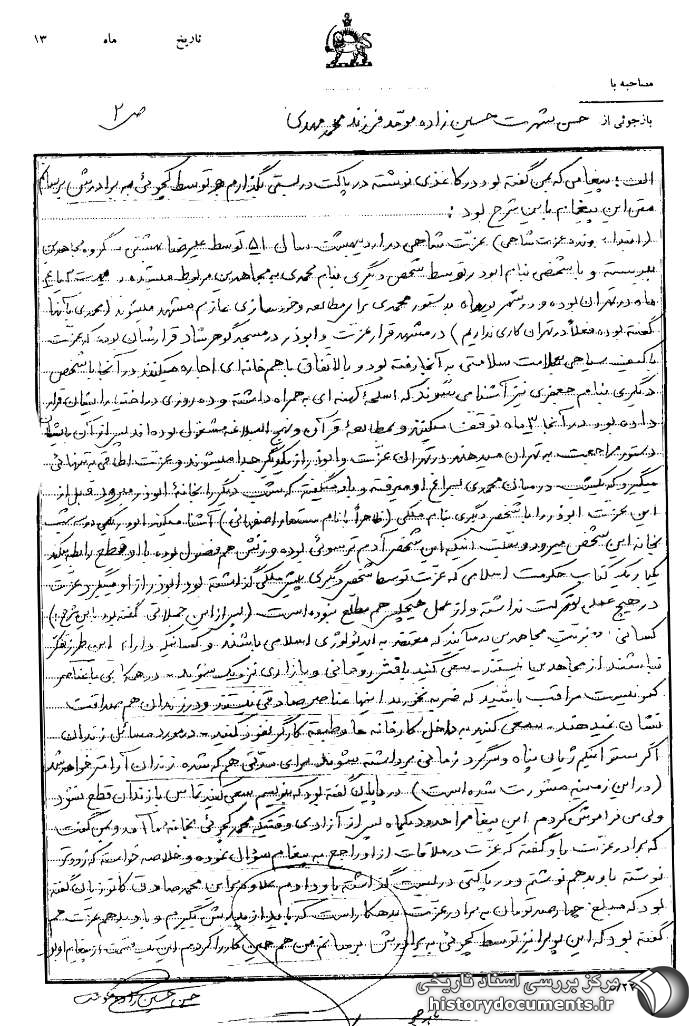 تاریخ ماه ۱۳
مصاحبه با
ص ۲
بازجوئی از حسن شهرت حسین زاده موحد فرزند محمد مهدی
الف: پیغامی که بمن گفته بود در کاغذی نوشته در پاکت دربستی بگذارم و توسط کچوئی به برادرش برسانم
متن این پیغام باین شرح بود:
(ابتدا پرونده عزت شاهی) عزت شاهی در اردیبهشت سال ۵۱ توسط علیرضا بهشتی به گروه مجاهدین
می‌پیوسته و با شخصی بنام ابوذر توسط شخص دیگری بنام محمدی به مجاهدین مربوط میشده
ماه در تهران بوده و در شهریور ماه بدستور محمدی برای مطالعه و خودسازی عازم مشهد میشوند (محمدی بآنها
گفته بوده فعلاً در تهران کاری نداریم) در مشهد قرار عزت و ابوذر در مسجد گوهرشاد قرارشان بوده که عزت
با کیف سیاهی بعلامت سلامتی به آنجا رفته بود و بالاتفاق با هم خانه‌ای اجاره میکنند در آنجا با شخص
دیگری بنام جعفری نیز آشنا می‌شوند که اسلحه کهنه‌ای به همراه داشته و ده روزی در اختیار ایشان قرار
داده بود در آنجا ۳ ماه توقف میکنند و بمطالعه قرآن و نهج البلاغه مشغول بوده‌اند پس از آن بایشان
دستور مراجعت به تهران میدهند در تهران عزت و ابوذر از یکدیگر جدا میشوند و عزت اطاقی به تنهائی
میگیرد که یکشب در میان محمدی بسراغ او میرفته و باو میگفته که شب دیگر را بخانه ابوذر میرود قبل از
این عزت ابوذر را با شخص دیگری بنام ملکی (ظاهراً با نام مستعار اصفهانی) آشنا میکند ابوذر یکی دو شب
بخانه این شخص میرود و بعلت اینکه این شخص آدم ترسوئی بوده و زنش هم فضول بوده با او قطع رابطه میکند
یکبار یک کتاب حکومت اسلامی که عزت توسط شخص دیگری پیش ملکی گذاشته بود ابوذر از او میگیرد عزت
در هیچ عملی شرکت نداشته و از عمل هیچکس هم مطلع نبوده است (پس از این جملاتی گفته بود باین شرح)
کسانی در بین مجاهدین بمانند که معتقد به ایدئولوژی اسلامی باشند و کسانیکه دارای این طرز تفکر
نباشند از مجاهدین نیستند - سعی کنید با قشر روحانی و بازاری نزدیک شوید - در همکاری با عناصر
کمونیست مراقب باشید که ضربه نخورید اینها عناصر صادقی نیستند و در زندان هم صداقت
نشان نمیدهند - سعی کنید به داخل کارخانه‌ها و طبقه کارگر نفوذ کنید - در مورد مسائل زندان
اگر ستوانیکم ژیان پناه و سرگرد زمانی برداشته بشوند برای مدتی هم که شده زندان آرامتر خواهد شد
(در این زمینه مشورت شده است) در پایان گفته بود که بنویسم سعی کنید تماس با زندان قطع نشود
ولی من فراموش کردم این پیغام را حدود یکماه پس از آزادی وقتیکه محمد کچوئی بخانه ما آمد و بمن گفت
که برادر عزت باو گفته که عزت در ملاقات از او راجع به پیغام سؤال نموده و خلاصه خواسته که زودتر
نوشته باو بدهم نوشتم و در پاکتی دربست گذاشته باو دادم علاوه بر این محمد صادق کاتوزیان گفته
بود که مبلغ چهارصد تومان به برادر عزت بدهکار است که باید از پدرش بگیرم و باو بدهم عزت هم
گفته بود که این پول را نیز توسط کچوئی به برادرش برسانم من هم همین کار را کردم این بود قسمت از پیغام اول
مرکز بررسی اسناد تاریخی
historydocuments.ir